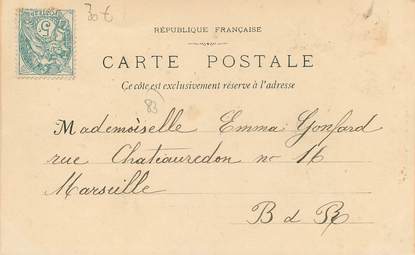 30 €
RÉPUBLIQUE FRANÇAISE
CARTE POSTALE
Ce côté est exclusivement réservé à l'adresse
83
Mademoiselle Emma Gonfard
rue Chateauredon no 16
Marseille
B d R
5